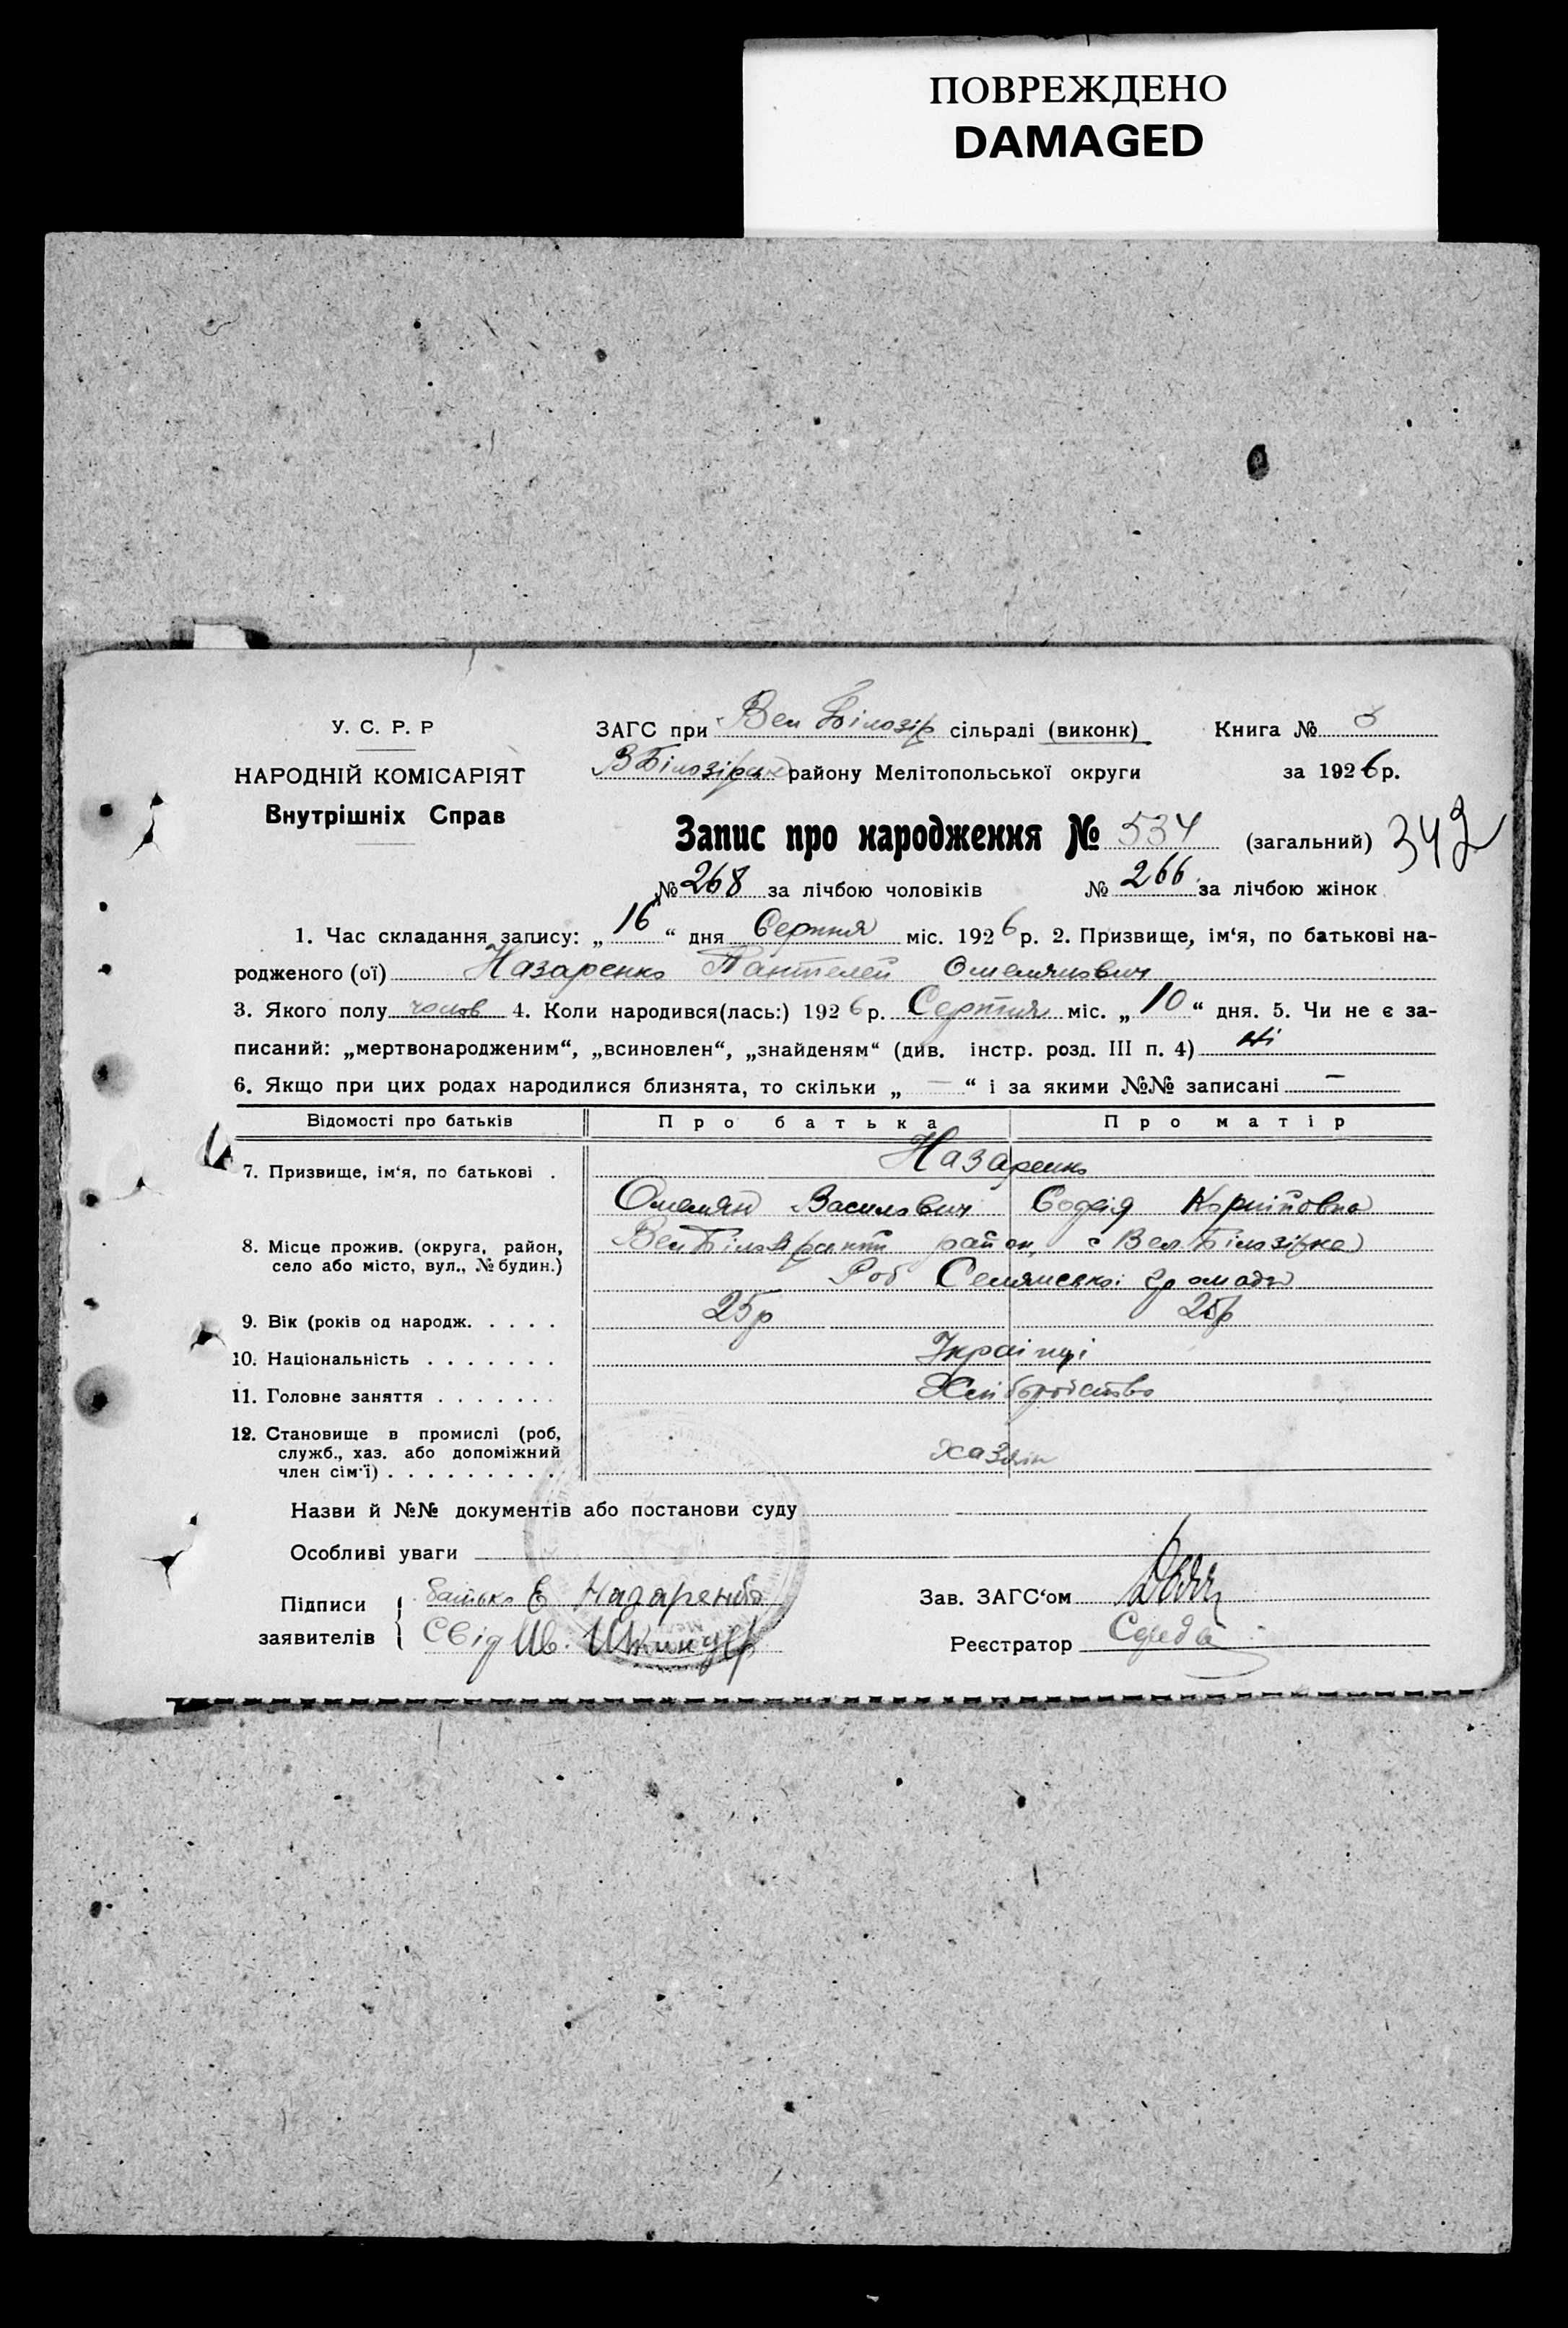 ПОВРЕЖДЕНО
DAMAGED
У. С. Р. Р
НАРОДНІЙ КОМІСАРІЯТ
Внутрішніх Справ
ЗАГС при Вел Білозір сільраді (виконк)
В Білозірськ району Мелітопольської округи
Книга № 3
за 1926 р.
Запис про народження № 534 (загальний) 342
№ 268 за лічбою чоловіків № 266 за лічбою жінок
1. Час складання запису: „16“ дня Серпня міс. 1926 р. 2. Призвище, ім‘я, по батькові на-
родженого (ої) Назаренко Пантелей Омелянович
3. Якого полу чолов 4. Коли народився(лась:) 1926 р. Серпня міс. „10“ дня. 5. Чи не є за-
писаний: „мертвонародженим“, „всиновлен“, „знайденям“ (див. інстр. розд. III п. 4) ні
6. Якщо при цих родах народилися близнята, то скільки „—“ і за якими №№ записані —
Відомості про батьків Про батька Про матір
7. Призвище, ім‘я, по батькові . Назаренко
Омелян Василович Софія Корніївна
8. Місце прожив. (округа, район, село або місто, вул., № будин.) Вел Білозірський район, с Вел Білозірка
Роб Селянської громади
9. Вік (років од народж. . . . . 25 р 25 р
10. Національність . . . . . . . Українці
11. Головне заняття . . . . . . . Хліборобство
12. Становище в промислі (роб,
служб., хаз. або допоміжний
член сім‘ї) . . . . . . . . . . хазяін
Назви й №№ документів або постанови суду
Особливі уваги
Підписи заявителів батько Е Назаренко
Свід Ив.
Зав. ЗАГС‘ом
Реєстратор Середа